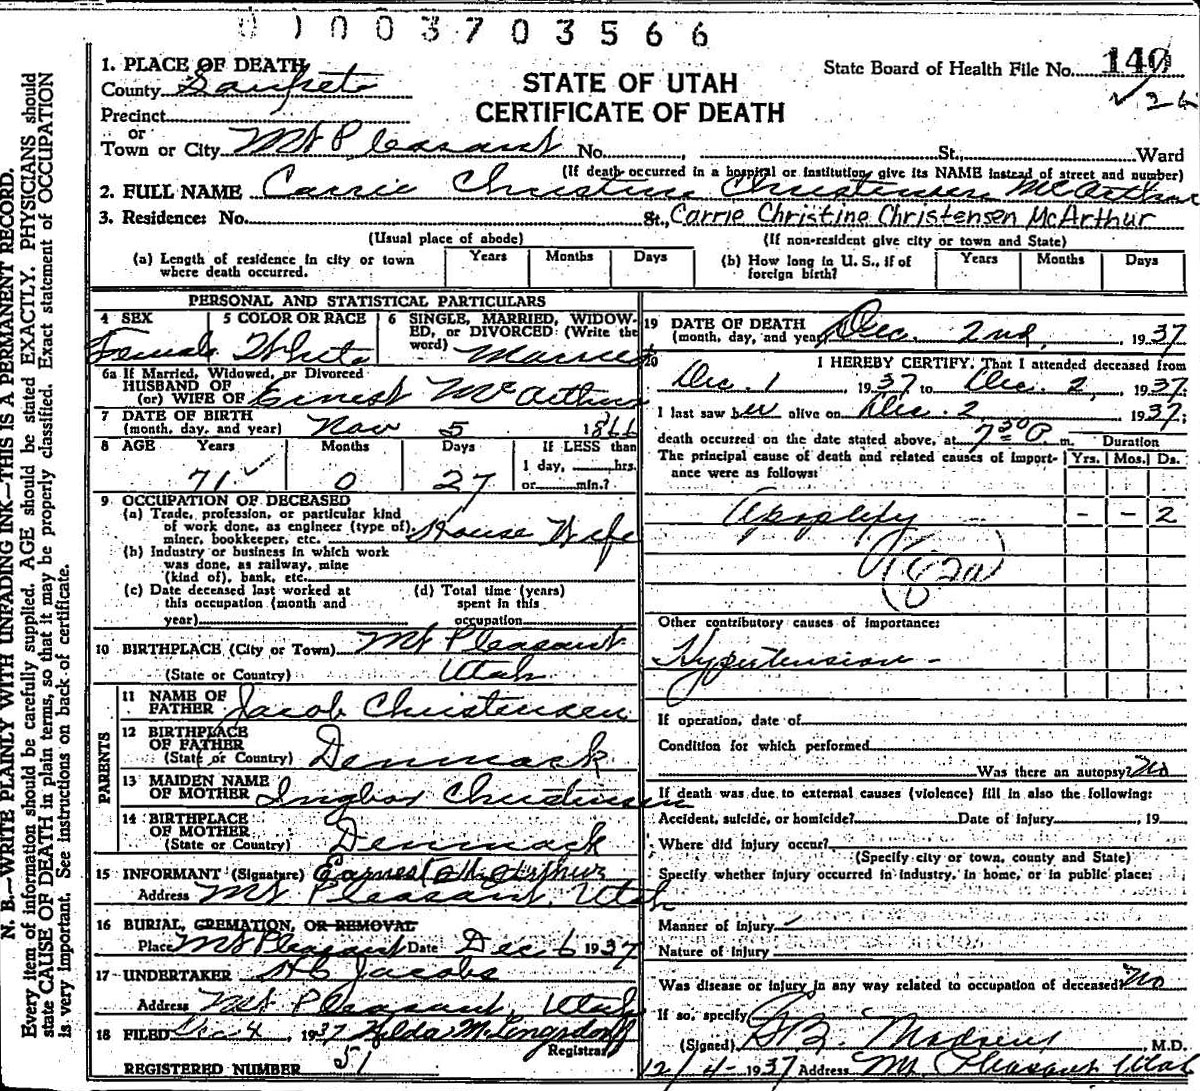 0100370 3566
1. PLACE OF DEATH
County Sanpete
STATE OF UTAH
CERTIFICATE OF DEATH
State Board of Health File No. 140
Precinct
or
Town or City Mt Pleasant No. St., Ward
(If death occurred in a hospital or institution, give its NAME instead of street and number)
2. FULL NAME Carrie Christine Christensen McArthur
3. Residence: No. St., Carrie Christine Christensen McArthur
(Usual place of abode) (If non-resident give city or town and State)
(a) Length of residence in city or town where death occurred. Years Months Days
(b) How long in U. S., if of foreign birth? Years Months Days
PERSONAL AND STATISTICAL PARTICULARS
4 SEX Female
5 COLOR OR RACE White
6 SINGLE, MARRIED, WIDOW-
ED, or DIVORCED: (Write the
word) Married
6a If Married, Widowed, or Divorced
HUSBAND OF
(or) WIFE OF Ernest McArthur
7 DATE OF BIRTH
(month, day, and year) Nov 5 1866
8 AGE Years Months Days If LESS than
71 0 27 1 day, hrs.
or min.?
9 OCCUPATION OF DECEASED
(a) Trade, profession, or particular kind
of work done, as engineer (type of),
miner, bookkeeper, etc. House Wife
(b) Industry or business in which work
was done, as railway, mine
(kind of), bank, etc.
(c) Date deceased last worked at
this occupation (month and
year)
(d) Total time (years)
spent in this
occupation
10 BIRTHPLACE (City or Town) Mt Pleasant
(State or Country) Utah
PARENTS
11 NAME OF
FATHER Jacob Christensen
12 BIRTHPLACE
OF FATHER
(State or Country) Denmark
13 MAIDEN NAME
OF MOTHER Ingbor Christensen
14 BIRTHPLACE
OF MOTHER
(State or Country) Denmark
15 INFORMANT (Signature) Earnest McArthur
Address Mt Pleasant, Utah
16 BURIAL, CREMATION, OR REMOVAL
Place Mt Pleasant Date Dec 6 1937
17 UNDERTAKER H C Jacobs
Address Mt Pleasant, Utah
18 FILED Dec 4 1937 Hilda M. Longsdorf
Registrar
REGISTERED NUMBER 51
19 DATE OF DEATH
(month, day, and year) Dec. 2nd, 1937
20 I HEREBY CERTIFY, That I attended deceased from
Dec. 1 1937 to Dec. 2, 1937
I last saw her alive on Dec. 2 1937;
death occurred on the date stated above, at 7 30 P m. Duration
The principal cause of death and related causes of import-
ance were as follows: Yrs. Mos. Ds.
Apoplexy - - 2
(82a)
Other contributory causes of importance:
Hypertension -
If operation, date of
Condition for which performed
Was there an autopsy? No
If death was due to external causes (violence) fill in also the following:
Accident, suicide, or homicide? Date of injury , 19
Where did injury occur?
(Specify city or town, county and State)
Specify whether injury occurred in industry, in home, or in public place:
Manner of injury
Nature of injury
Was disease or injury in any way related to occupation of deceased? No
If so, specify
(Signed) Madsen, M.D.
12/4-1937 Address Mt. Pleasant Utah
N. B.—WRITE PLAINLY WITH UNFADING INK—THIS IS A PERMANENT RECORD.
Every item of information should be carefully supplied. AGE should be stated EXACTLY. PHYSICIANS should
state CAUSE OF DEATH in plain terms, so that it may be properly classified. Exact statement of OCCUPATION
is very important. See instructions on back of certificate.